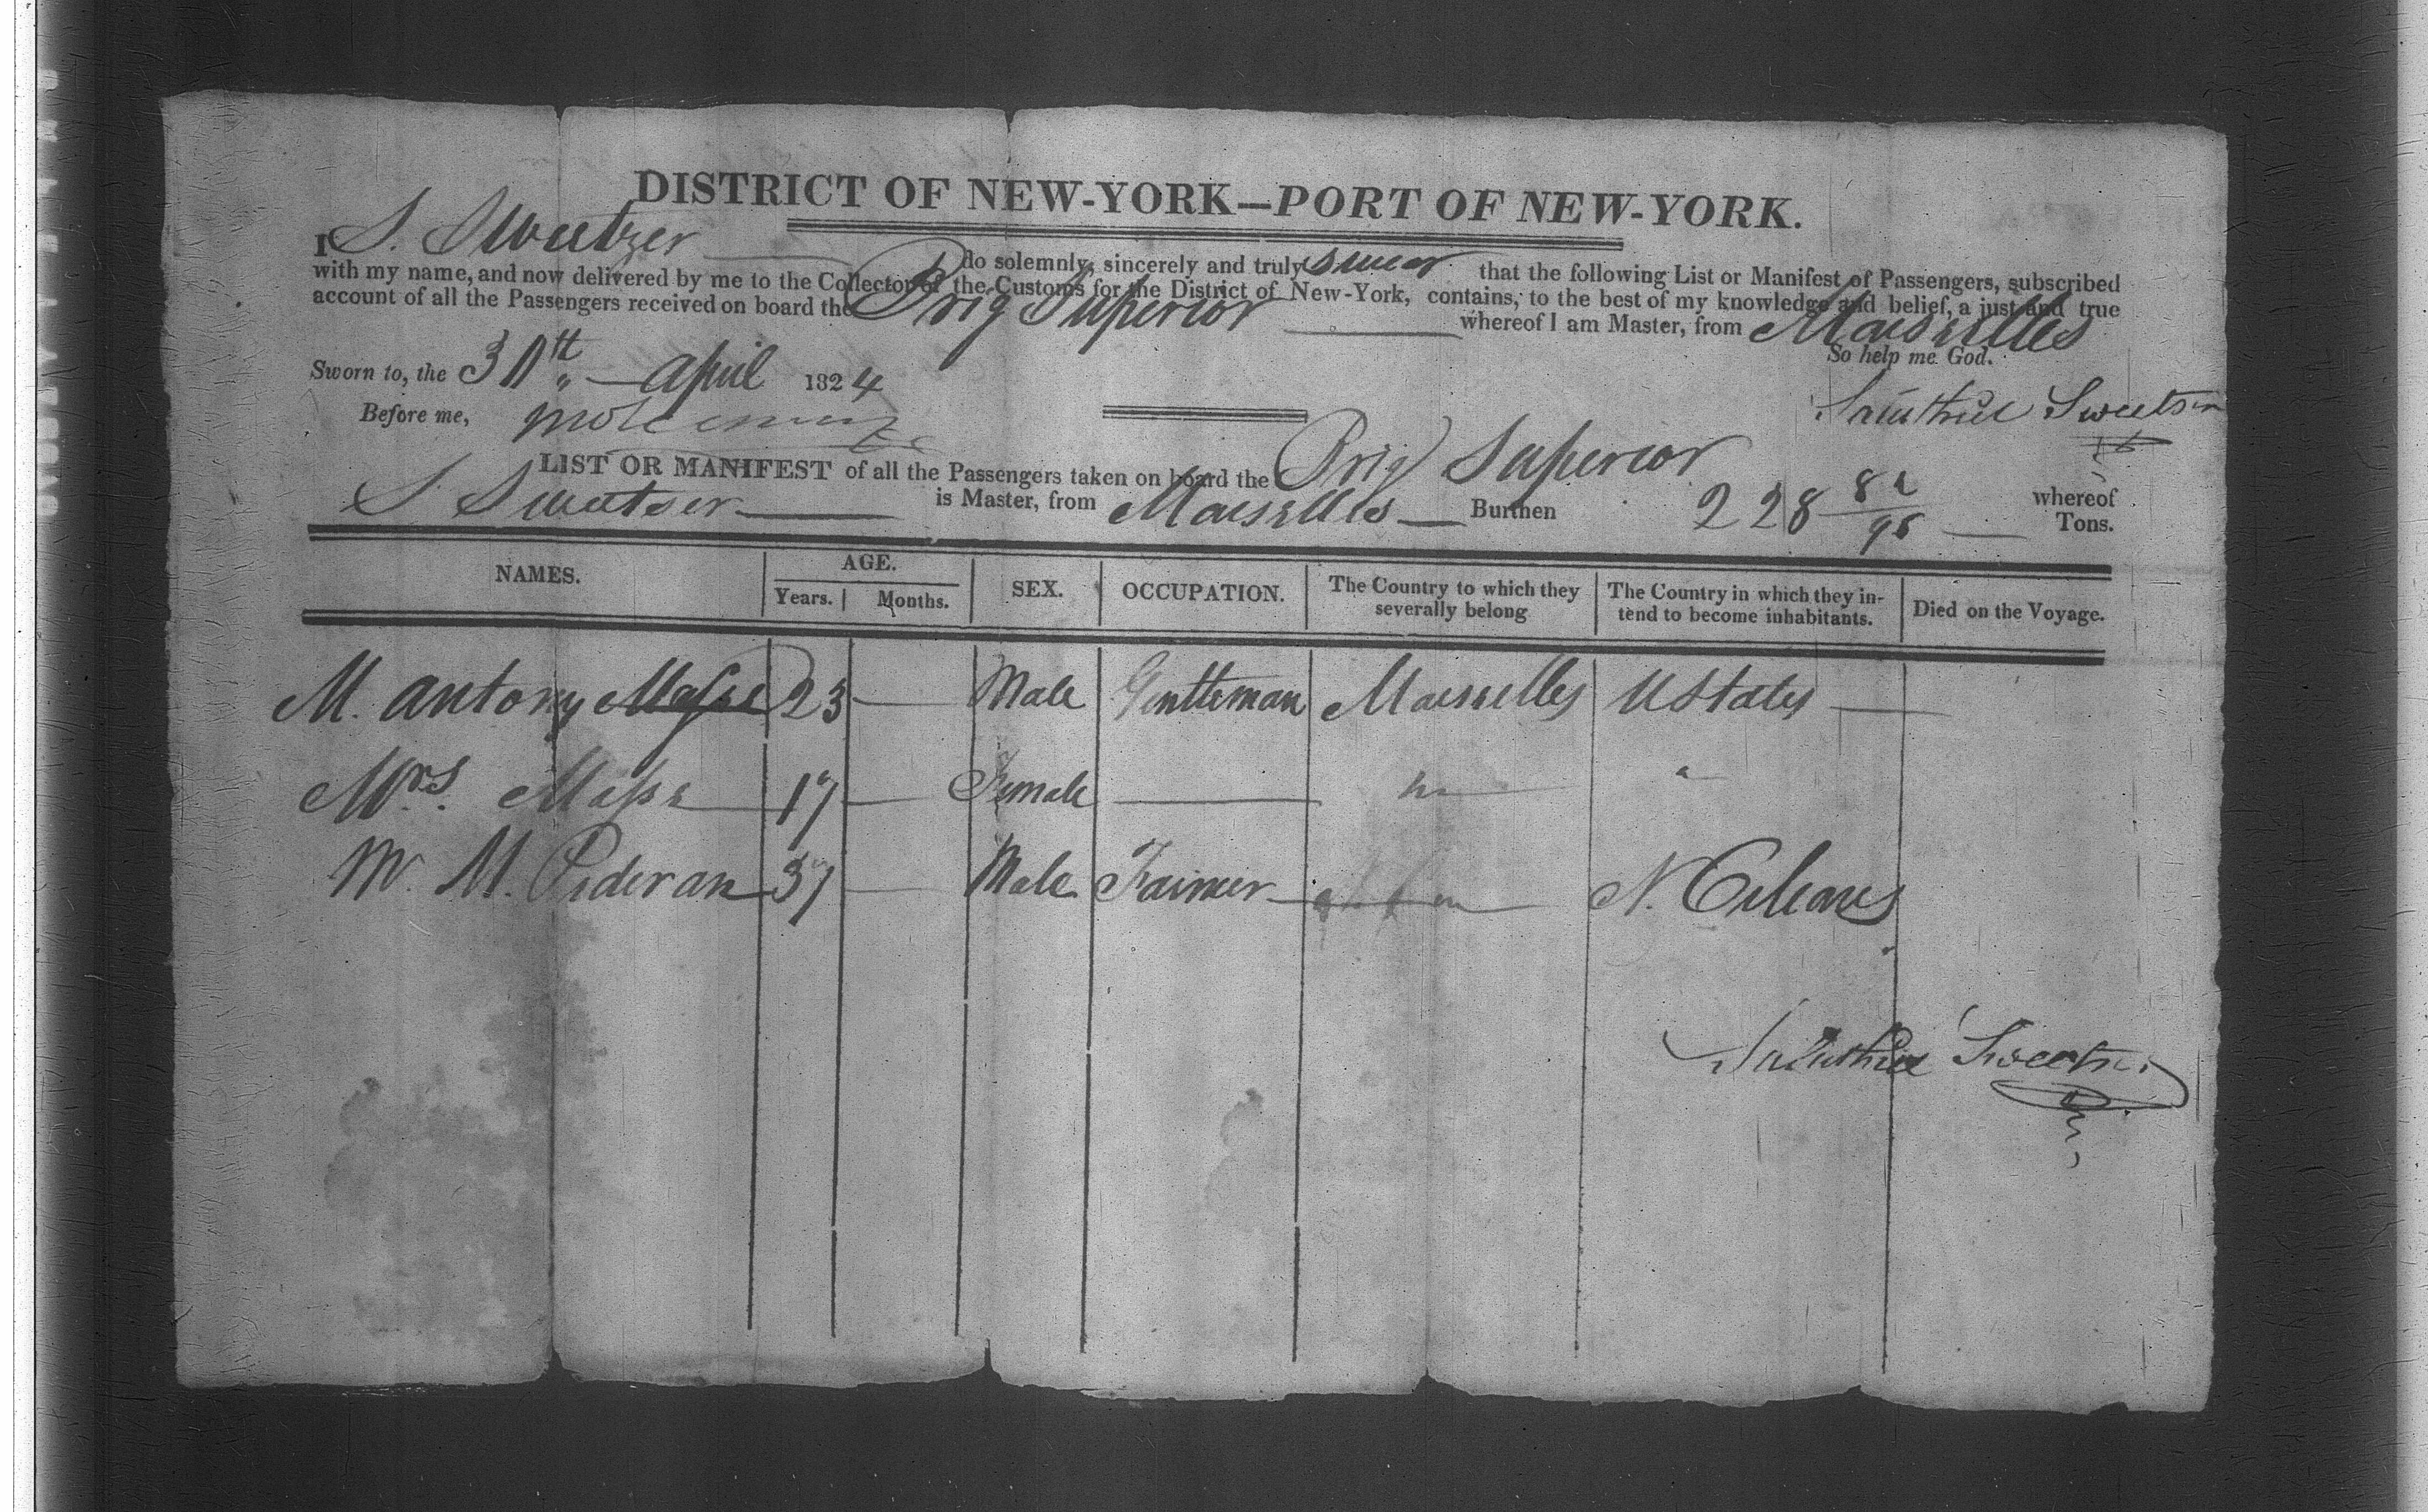 DISTRICT OF NEW-YORK—PORT OF NEW-YORK.
I S. Sweetzer do solemnly, sincerely and truly swear that the following List or Manifest of Passengers, subscribed
with my name, and now delivered by me to the Collector of the Customs for the District of New-York, contains, to the best of my knowledge and belief, a just and true
account of all the Passengers received on board the Brig Superior whereof I am Master, from Marseilles
So help me God.
Sworn to, the 30th April 1824
Before me,
Sweetser
LIST OR MANIFEST of all the Passengers taken on board the Brig Superior whereof
S Sweetser is Master, from Marseilles Burthen 228 Tons.
NAMES. AGE. Years. Months. SEX. OCCUPATION. The Country to which they severally belong The Country in which they intend to become inhabitants. Died on the Voyage.
M. Antony Masse 23 — Male Gentleman Marseilles U States —
Mrs. Masse 17 — Female —
M. 37 — Male Farmer N. Orleans
Sweetser